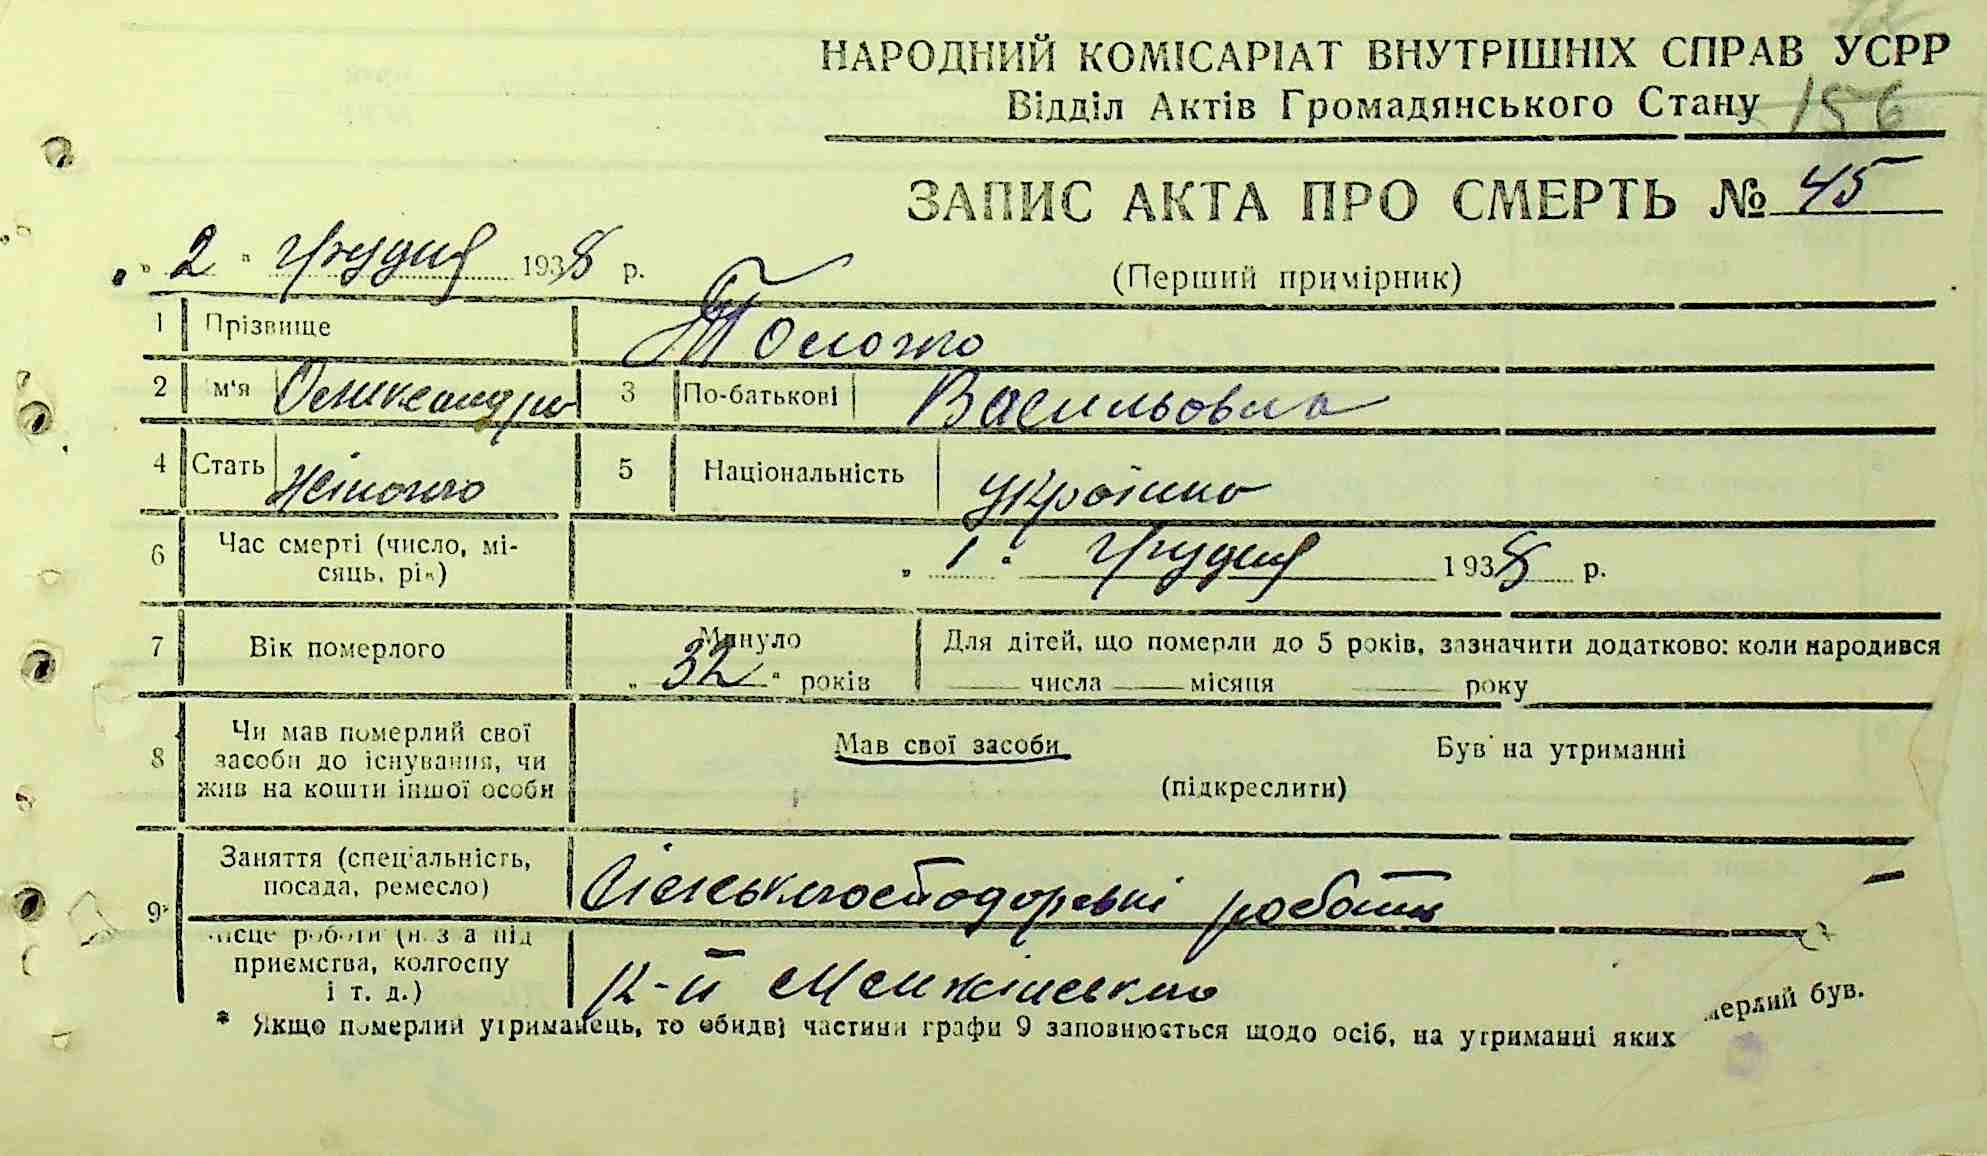 НАРОДНИЙ КОМІСАРІАТ ВНУТРІШНІХ СПРАВ УСРР
Відділ Актів Громадянського Стану 156
ЗАПИС АКТА ПРО СМЕРТЬ № 45
„ 2 " грудня 1938 р.
(Перший примірник)
1 Прізвище
2 ім'я Олександра 3 По-батькові Васильовна
4 Стать жіноча 5 Національність українка
6 Час смерті (число, мі-
сяць, рік) „ 1 " грудня 1938 р.
7 Вік померлого Минуло Для дітей, що померли до 5 років, зазначити додатково: коли народився
„ 32 " років числа місяця року
8 Чи мав померлий свої
засоби до існування, чи
жив на кошти іншої особи
Мав свої засоби Був на утриманні
(підкреслити)
9* Заняття (спеціальність,
посада, ремесло) Сільськогосподарські роботи
місце роботи (назва під
приємства, колгоспу
і т. д.)
* Якщо померлий утриманець, то обидві частини графи 9 заповнюється щодо осіб, на утриманні яких мерлий був.